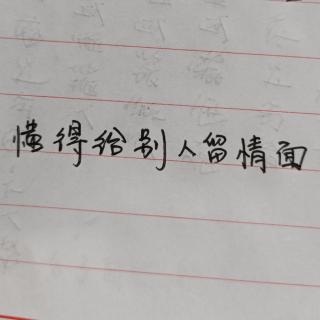 懂得给别人留情面